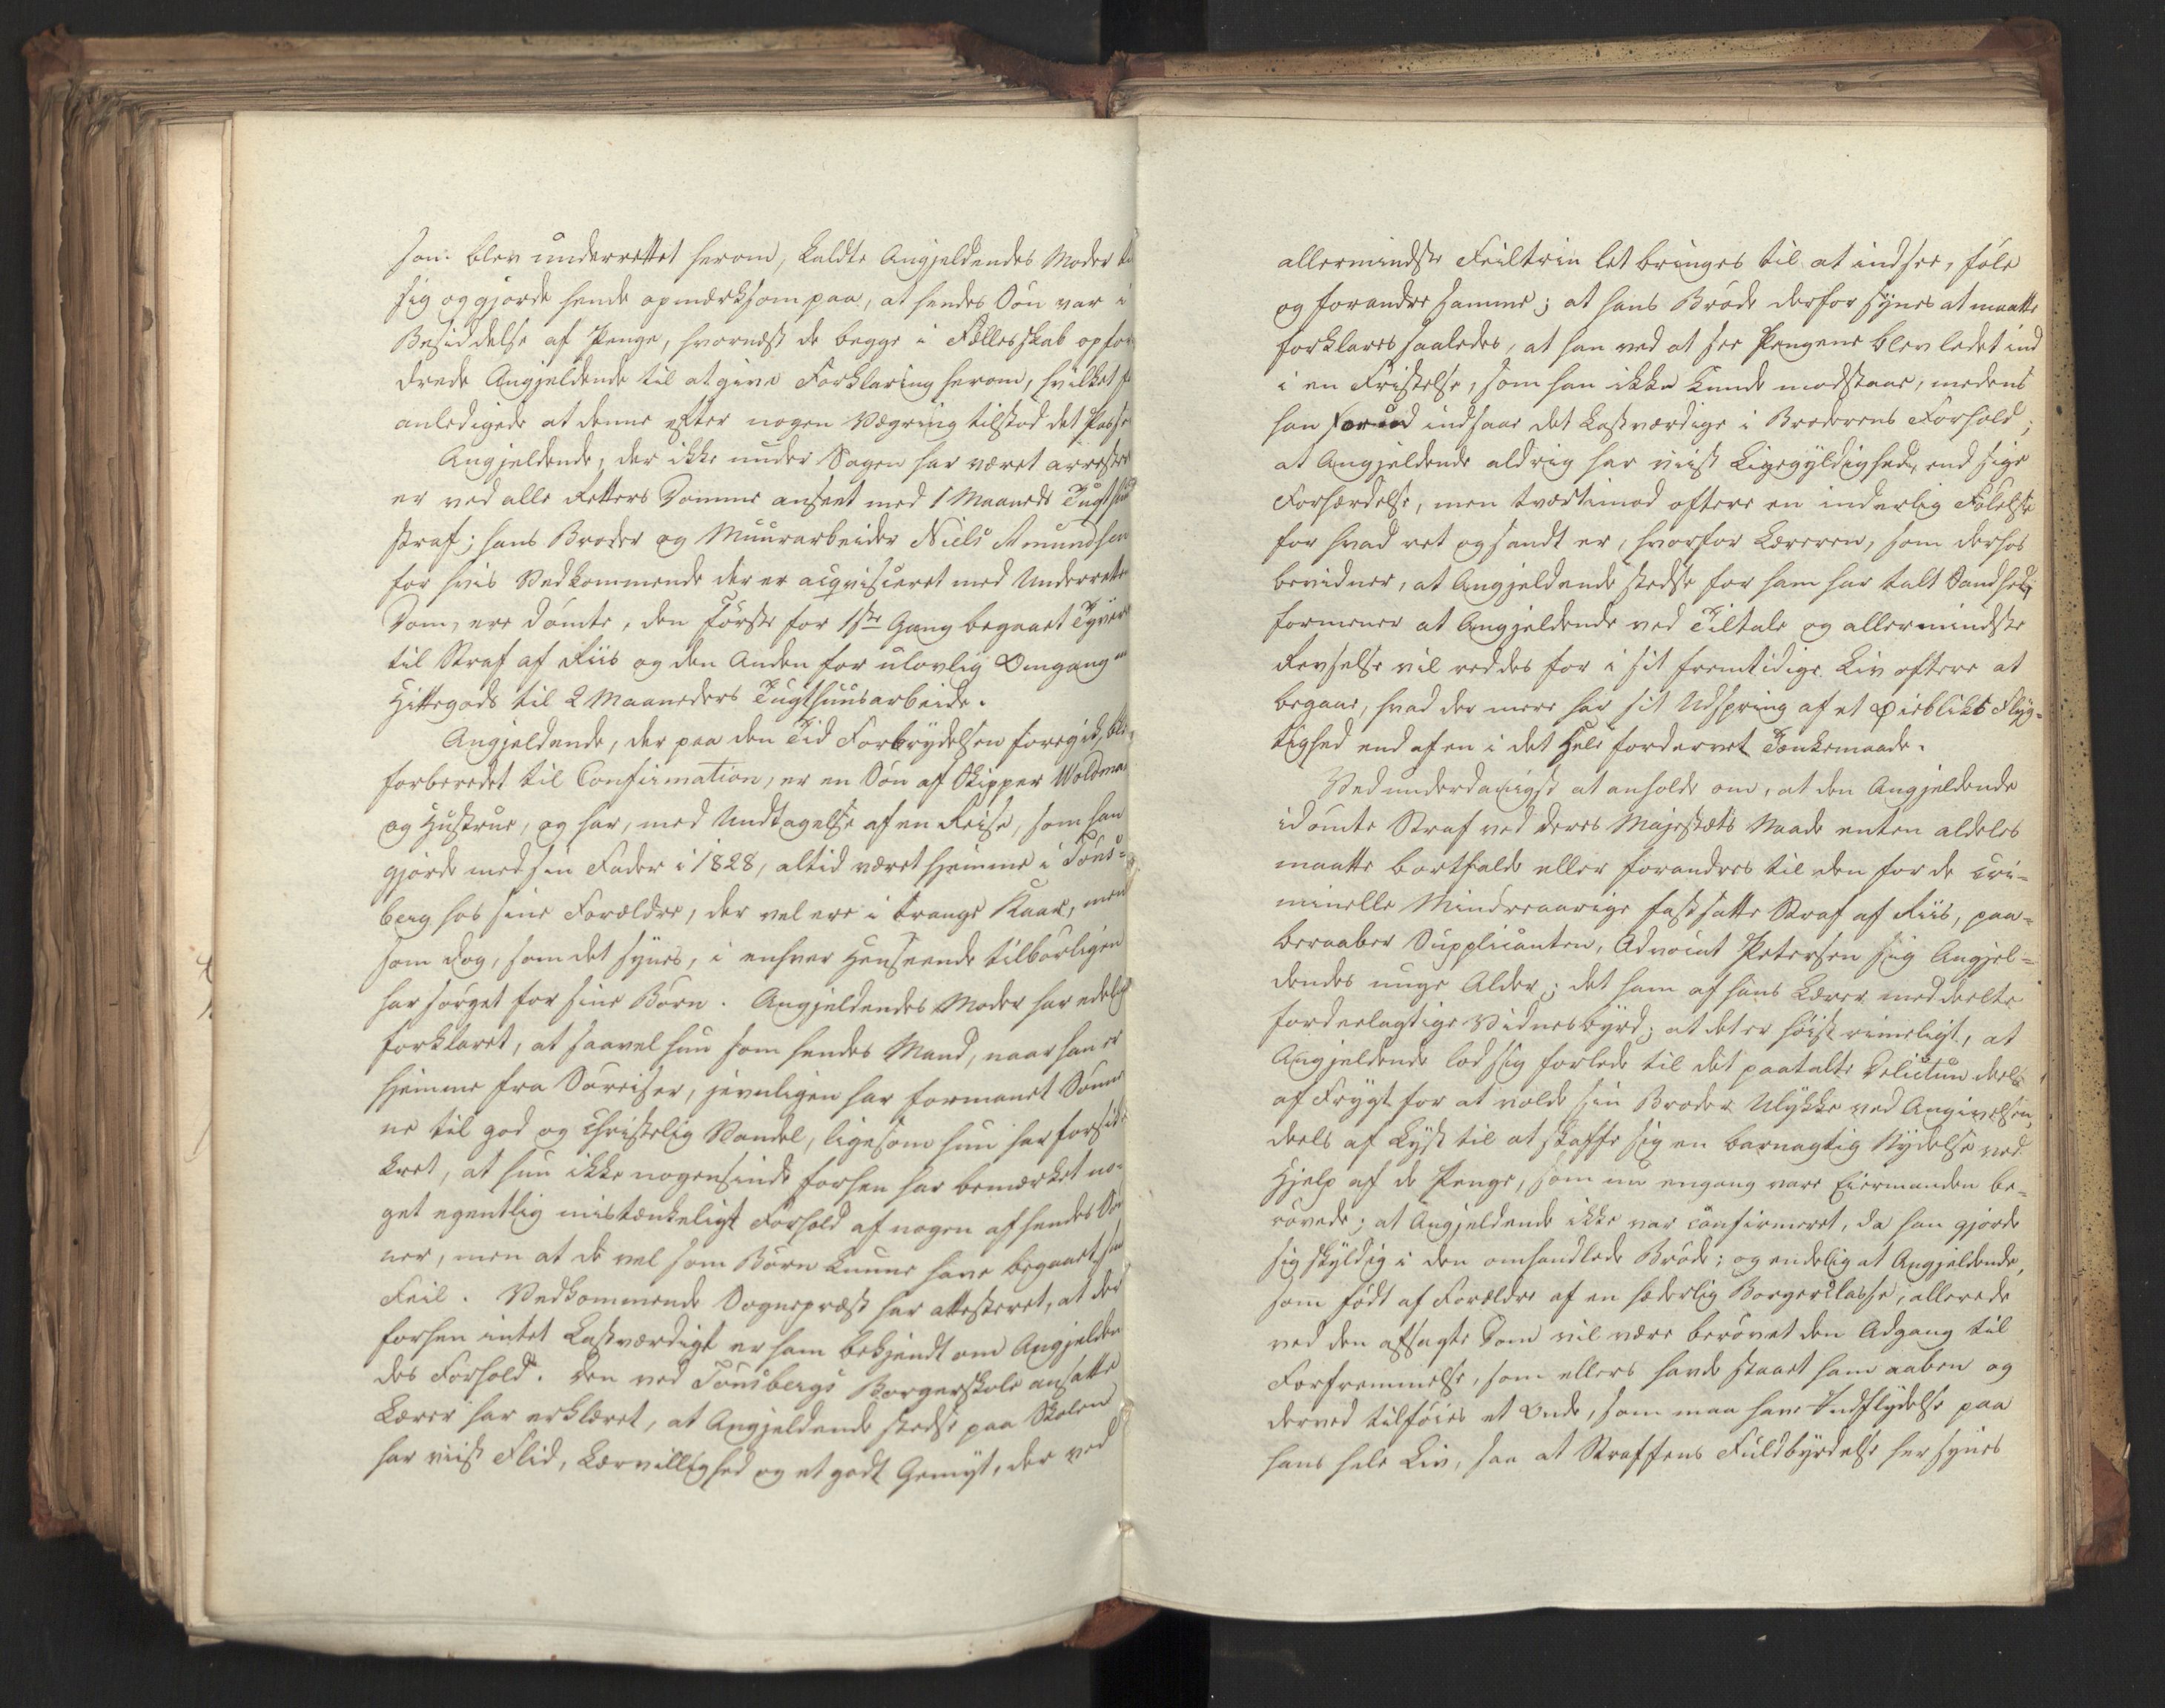 som blev underrettet herom, kaldte Angjeldendes Moder til
sig og gjorde hende opmærksom paa, at hendes Søn var i
Besiddelse af Penge, hvornæst de begge i Fællesskab opfor-
drede Angjeldende til at give Forklaring herom, hvilket
anledigede at denne efter nogen Vægring tilstod det Passe
Angjeldende, der ikke under Sagen har været arresteret
er ved alle Retters Domme anseet med 1 Maaneds Tugthuus
straf; hans Broder og Muurarbeider Niels Amundsen
for hvis Vedkommende der er acqvisceret med Underrettens
Dom, ere dømte, den Første for 1ste Gang begaaet Tyverie
til Straf af Riis og den Anden for ulovlig Omgang m
Hittegods til 2 Maaneders Tugthuusarbeide.
Angjeldende, der paa den Tid Forbrydelsen foregik, blev
forberedet til Confirmation, er en Søn af Skipper Woldma
og Hustrue, og har, med Undtagelse af en Reise, som han
gjorde med sin Fader i 1828, altid været hjemme i Tøns-
berg hos sine Forældre, der vel ere i trange Kaar, men
som dog, som det synes, i enhver Henseende tilbørligen
har sørget for sine Børn. Angjeldendes Moder har edelig
forklaret, at saavel hun som hendes Mand, naar han er
hjemme fra Søreiser, jevnligen har formanet Sønner
ne til god og christelig Vandel, ligesom hun har forsik-
kret, at hun ikke nogensinde forhen har bemærket no-
get egentlig mistænkeligt Forhold af nogen af hendes Søn
ner, men at de vel som Børn kunne have begaaet smaa
Feil. Vedkommende Sognepræst har attesteret, at der
forhen intet Lastværdigt er ham bekjendt om Angjelden
des Forhold. Den ved Tønsbergs Borgerskole ansatte
Lærer har erklæret, at Angjeldende stedse paa Skolen
har viist Flid, Lærvillighed og et godt Gemyt, der ved
allermindste Feiltrin let bringes til at indsee, føle
og forandre samme; at hans Brøde derfor synes at maatte
forklares saaledes, at han ved at see Pengene blev ledet ind
i en Fristelse, som han ikke kunde modstaae, medens
han forud indsaae det Lastværdige i Broderens Forhold;
at Angjeldende aldrig har viist Ligegyldighed, end sige
Forhærdelse, men tvertimod oftere en inderlig Følelse
for hvad ret og sandt er, hvorfor Læreren, som derhos
bevidner, at Angjeldende stedse for ham har talt Sandhed,
formener at Angjeldende ved Tiltale og allermindste
Revselse vil reddes for i sit fremtidige Liv oftere at
begaae, hvad der mere har sit Udspring af et Øiebliks Flyg-
tighed end af en i det Hele fordervet Tænkemaade.
Ved underdanigst at anholde om, at den Angjeldende
idømte Straf ved Deres Majestæts Naade enten aldeles
maatte bortfalde eller forandres til den for de cri-
minelle Mindreaarige fastsatte Straf af Riis, paa-
beraaber Supplicanten, Advocat Petersen sig Angjel-
dendes unge Alder; det ham af hans Lærer meddeelte
fordeelagtige Vidnesbyrd; at det er høist rimeligt, at
Angjeldende lod sig forlede til det paatalte Delictum deels
af Frygt for at volde sin Broder Ulykke ved Angivelsen,
deels af Lyst til at skaffe sig en barnagtig Nydelse ved
Hjelp af de Penge, som nu engang vare Eiermanden be-
røvede; at Angjeldende ikke var confirmeret, da han gjorde
sig skyldig i den omhandlede Brøde; og endelig at Angjeldende,
som født af Forældre af en hæderlig Borgerclasse, allerede
ved den afsagte Dom vil være berøvet den Adgang til
Forfremmelse, som ellers havde staaet ham aaben og
derved tilføies et Onde, som maa have Indflydelse paa
hans hele Liv, saa at Straffens Fuldbyrdelse her synes